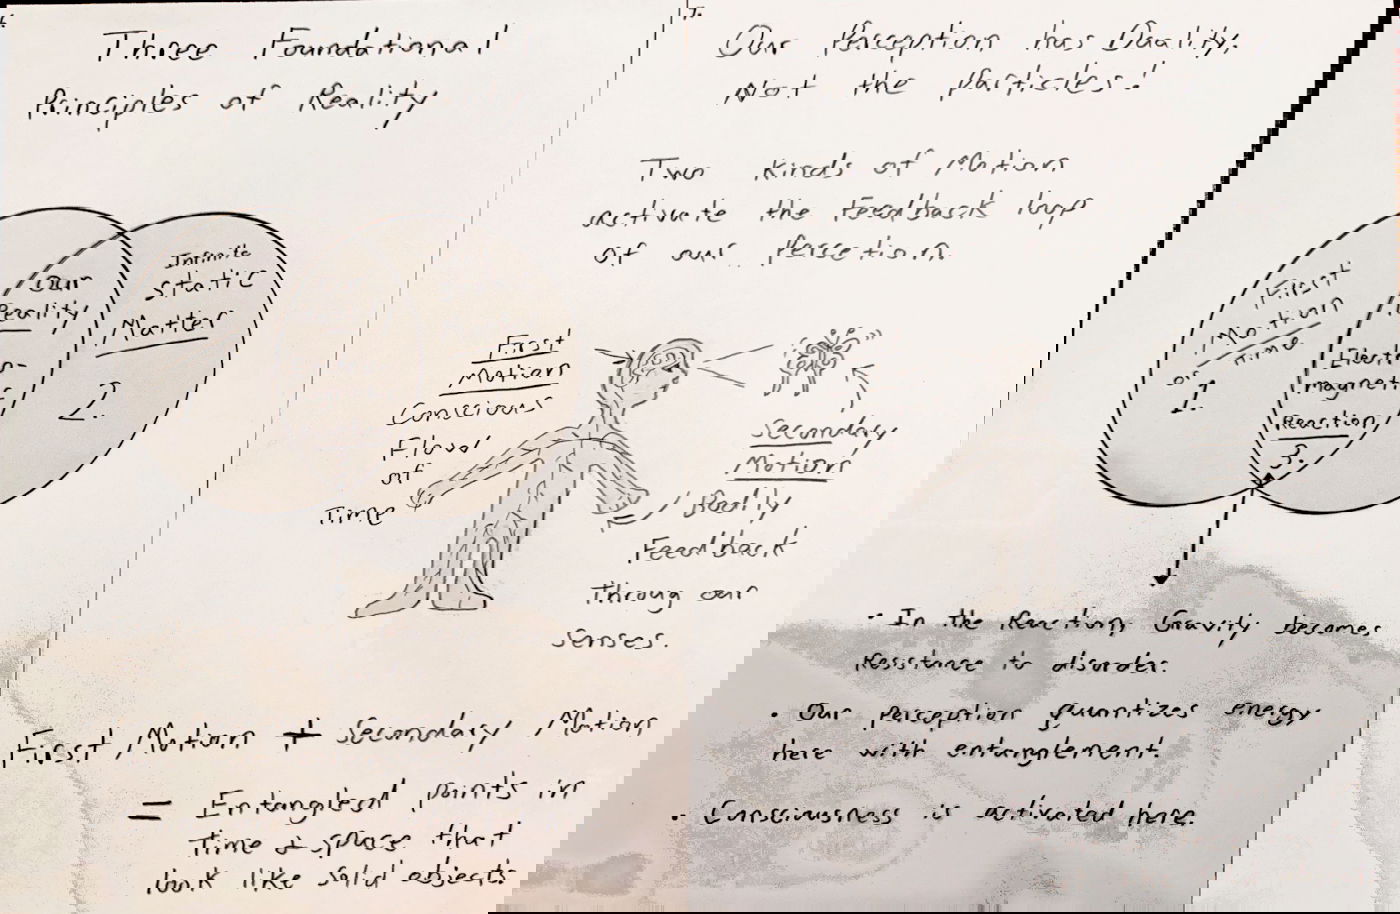 Three Foundational
Principles of Reality
Our
Reality
Infinite
Static
Matter
2.
First
Motion
Conscious
Flow
of
Time
First Motion + Secondary Motion
= Entangled points in
Time & space that
look like solid objects.
7.
Our Perception has Duality,
Not the particles!
Two Kinds of Motion
activate the Feedback loop
of our Percetion.
Secondary
Motion
/ Bodily
Feedback
throug our
senses.
First
Motion
of Time
1.
Reaction
3.
• In the Reaction, Gravity becomes
Resistance to disorder.
• Our perception quantizes energy
here with entanglement.
• Consciousness is activated here.